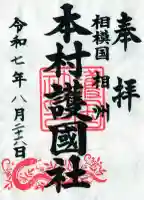 奉拝
相模国 相州
本村護國社
令和七年八月二十六日